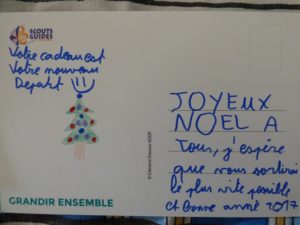 SCOUTS
GUIDES
Votre cadeau est
Votre nouveau
Départ !!!
JOYEUX
NOEL A
Tous, j'espère
que vous sortirai
le plus vite possible
et Bonne année 2017
GRANDIR ENSEMBLE